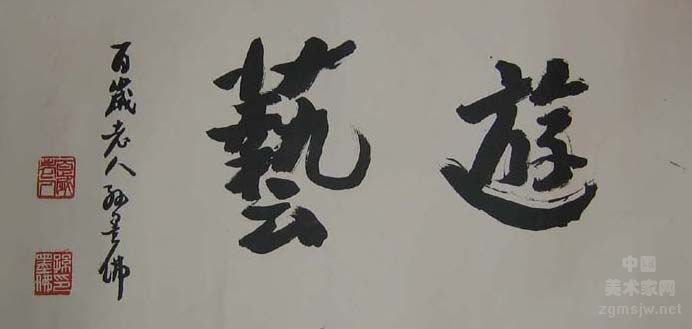 遊藝
百歲老人孫墨佛
百歲老人
孫印墨佛
中国
美术家网
zgmsjw.net